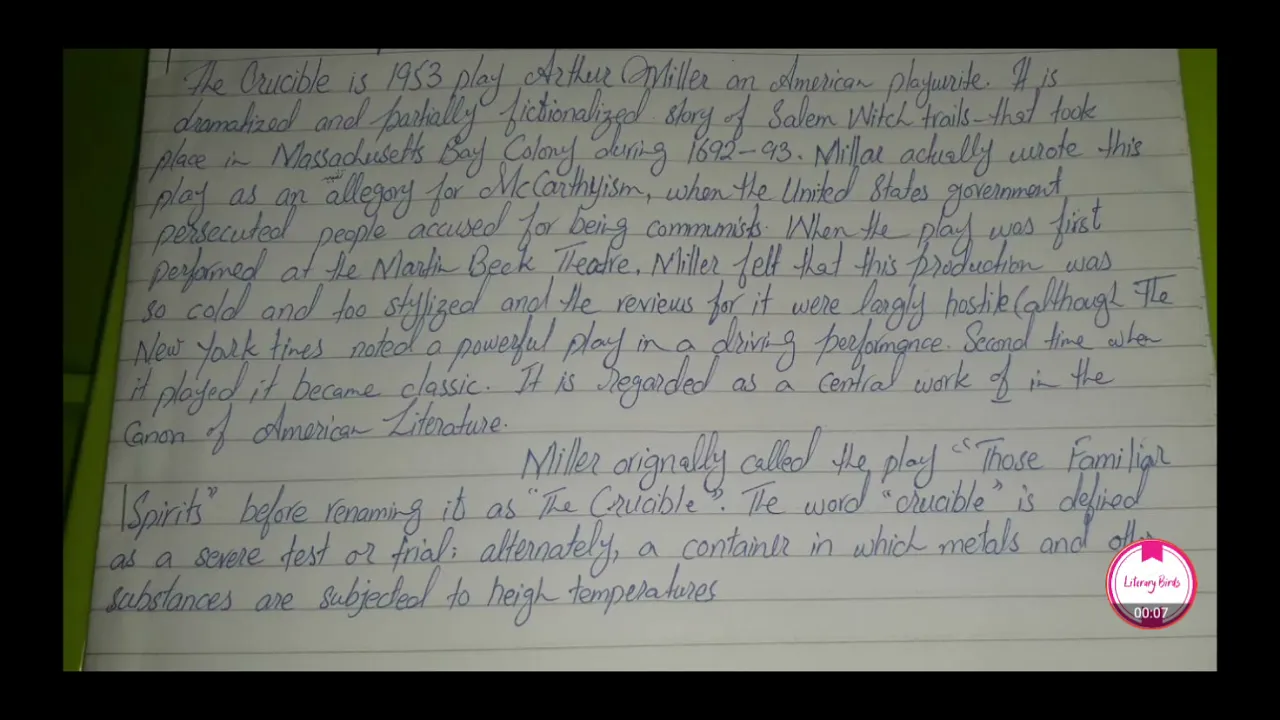 The Crucible is 1953 play Arthur Miller an American playwrite. It is
dramatized and partially fictionalized story of Salem Witch trails that took
place in Massachusetts Bay Colony during 1692-93. Millar actually wrote this
play as an allegory for McCarthyism, when the United States government
persecuted people accused for being communists. When the play was first
performed at the Martin Beck Theatre, Miller felt that this production was
so cold and too stylized and the reviews for it were largly hostile (although The
New York times noted a powerful play in a driving performance. Second time when
it played it became classic. It is regarded as a central work of in the
Canon of American Literature.
Miller orignally called the play "Those Familiar
Spirits" before renaming it as "The Crucible". The word "crucible" is defined
as a severe test or trial; alternately, a container in which metals and
substances are subjected to heigh temperatures
Literary Birds
00:07